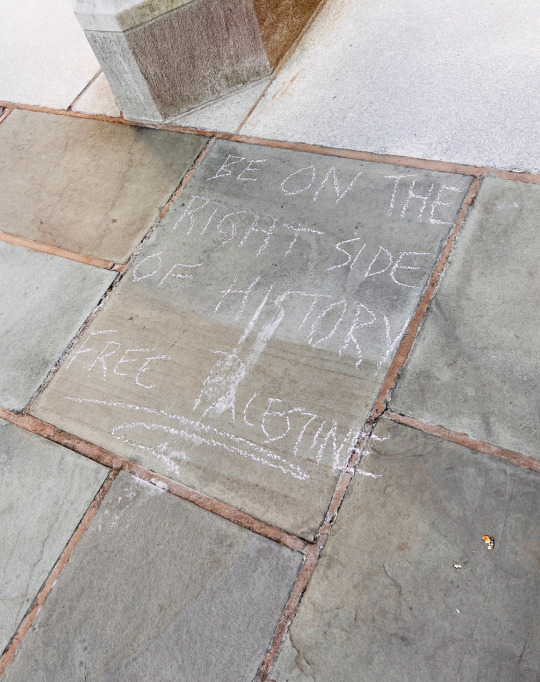 BE ON THE
RIGHT SIDE
OF HISTORY
FREE PALESTINE